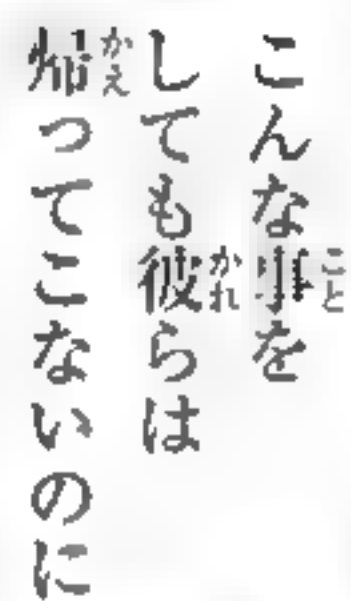 こんな事を
しても彼らは
帰ってこないのに